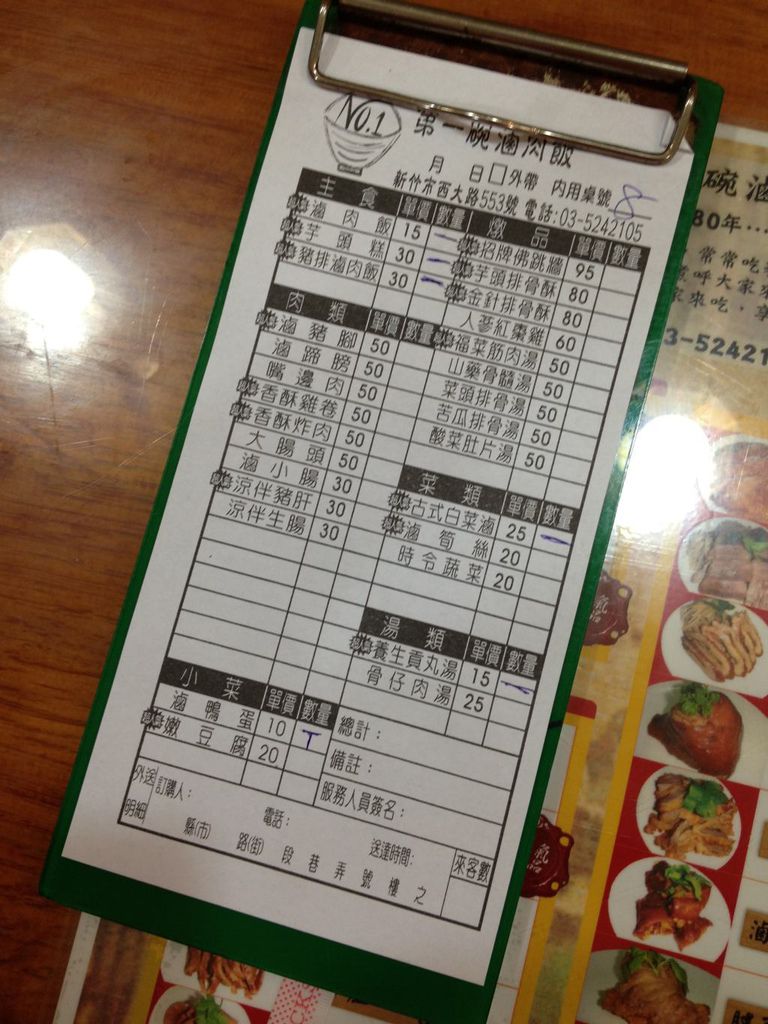 NO.1 第一碗滷肉飯
月 日 □外帶 內用桌號 8
新竹市西大路553號 電話:03-5242105
主食 單價 數量
滷肉飯 15 一
芋頭糕 30 一
豬排滷肉飯 30 一
肉類 單價 數量
滷豬腳 50
滷蹄膀 50
嘴邊肉 50
香酥雞卷 50
香酥炸肉 50
大腸頭 50
滷小腸 30
涼伴豬肝 30
涼伴生腸 30
小菜 單價 數量
滷鴨蛋 10
嫩豆腐 20 T
燉品 單價 數量
招牌佛跳牆 95
芋頭排骨酥 80
金針排骨酥 80
人蔘紅棗雞 60
福菜筋肉湯 50
山藥骨髓湯 50
菜頭排骨湯 50
苦瓜排骨湯 50
酸菜肚片湯 50
菜類 單價 數量
古式白菜滷 25 一
滷筍絲 20
時令蔬菜 20
湯類 單價 數量
養生貢丸湯 15 一
骨仔肉湯 25
總計:
備註:
服務人員簽名:
外送明細
訂購人: 電話: 送達時間: 來客數
縣(市) 路(街) 段 巷 弄 號 樓 之
碗滷
80年...
常常吃
呼大家
家來吃,享
3-52421